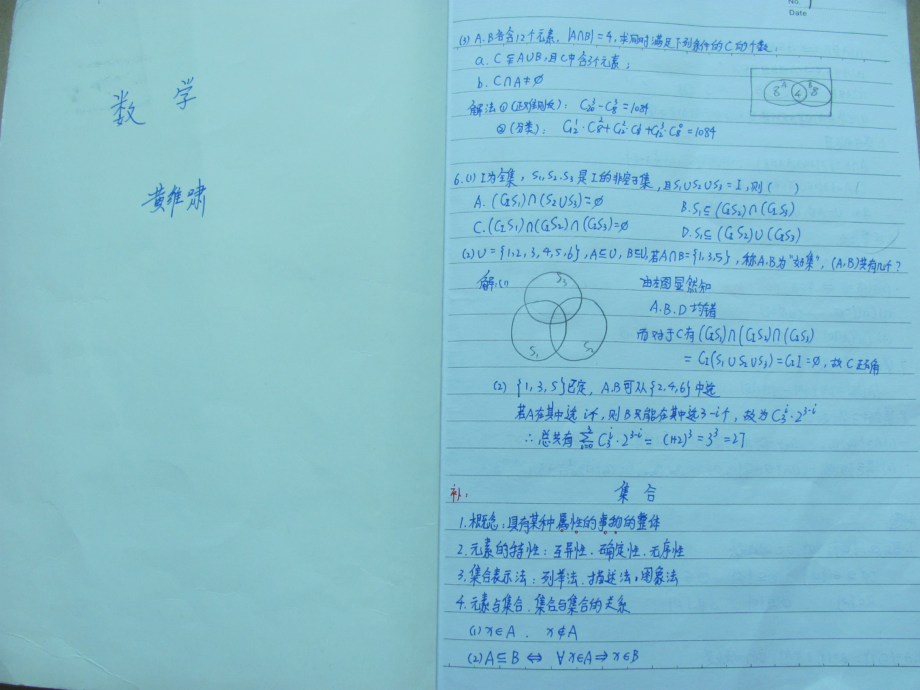 数学
黄维啸
No. 1
Date
(3) A.B各含12个元素, |A∩B|=4, 求同时满足下列条件的C的个数.
a. C⊊A∪B, 且C中含3个元素;
b. C∩A≠∅
解法①(正难则反): C₂₀³-C₈³=1084
②(分类): C₁₂¹·C₈²+C₁₂²·C₈¹+C₁₂³·C₈⁰=1084
A B
8 4 8
6.(1) I为全集, S₁,S₂,S₃是I的非空子集, 且S₁∪S₂∪S₃=I, 则( )
A. (∁ᵢS₁)∩(S₂∪S₃)=∅ B. S₁⊆(∁ᵢS₂)∩(∁ᵢS₃)
C. (∁ᵢS₁)∩(∁ᵢS₂)∩(∁ᵢS₃)=∅ D. S₁⊆(∁ᵢS₂)∪(∁ᵢS₃)
(2) U={1,2,3,4,5,6}, A⊆U, B⊆U, 若A∩B={1,3,5}, 称A.B为"好集", (A,B)共有几个?
解:(1)
S₃
S₁ S₂
由左图显然知
A.B.D均错
而对于C有(∁ᵢS₁)∩(∁ᵢS₂)∩(∁ᵢS₃)
=∁ᵢ(S₁∪S₂∪S₃)=∁ᵢI=∅, 故C正确
(2) {1,3,5}已定, A.B可从{2,4,6}中选
若A在其中选i个, 则B只能在其中选3-i个, 故为C₃ⁱ·2³⁻ⁱ
∴总共有 ∑ᵢ₌₀³ C₃ⁱ·2³⁻ⁱ=(1+2)³=3³=27
补: 集合
1.概念:具有某种属性的事物的整体
2.元素的特性:互异性、确定性、无序性
3.集合表示法:列举法、描述法、图象法
4.元素与集合、集合与集合的关系
(1) x∈A . x∉A
(2) A⊆B ⇔ ∀x∈A⇒x∈B